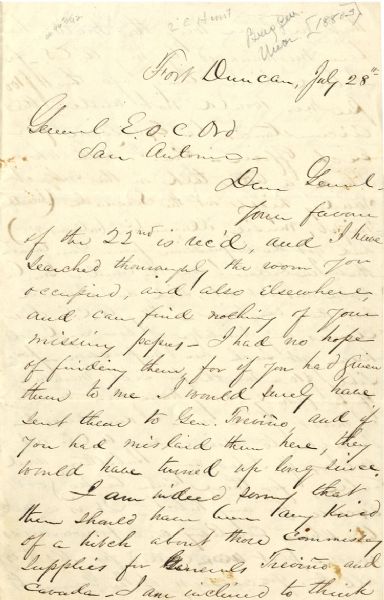 Z C Hunt
Brig Gen.
Union [1880-3]
Fort Duncan, July 28th
General E. O. C. Ord
San Antonio –
Dear General
Your favor
of the 22nd is rec'd, and I have
searched thouroughly the room you
occupied, and also elsewhere,
and can find nothing of your
missing papers – I had no hope
of finding them, for if you had given
them to me I would surely have
sent them to Gen. Treviño, and if
you had mislaid them here, they
would have turned up long since.
I am indeed sorry that
there should have been any kind
of a hitch about those commissary
supplies for Generals Treviño and
– I am inclined to think